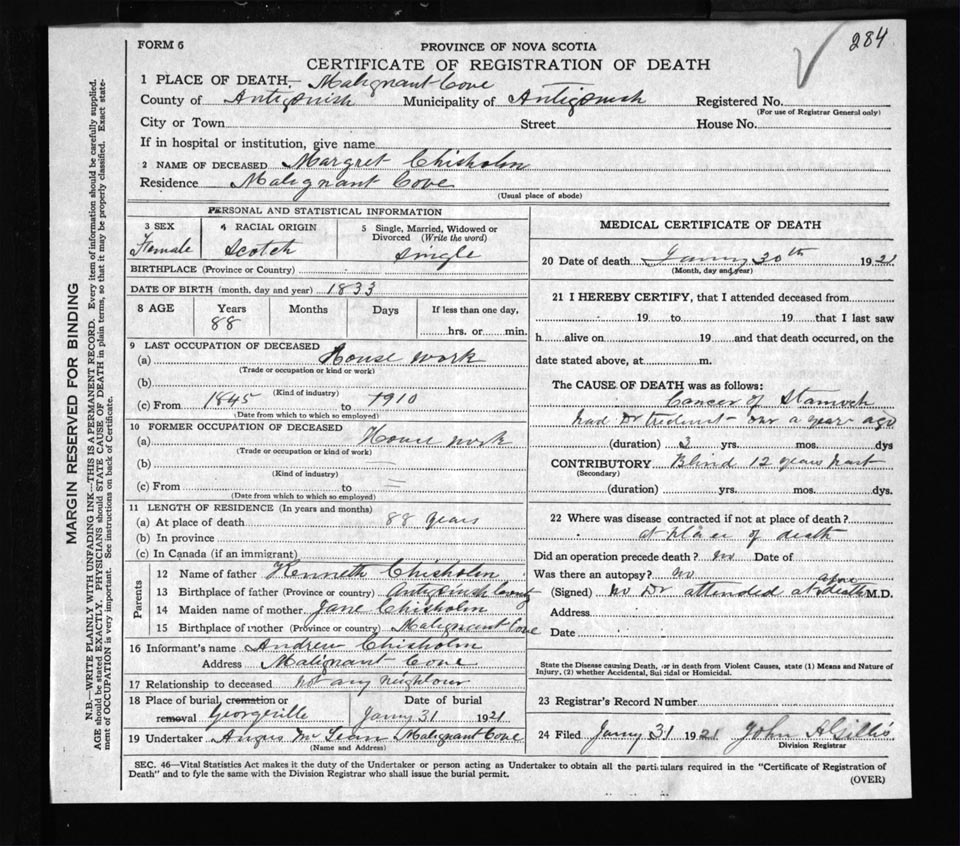 284
FORM 6
PROVINCE OF NOVA SCOTIA
CERTIFICATE OF REGISTRATION OF DEATH
1 PLACE OF DEATH— Malignant Cove
County of Antigonish Municipality of Antigonish Registered No.
(For use of Registrar General only)
City or Town Street House No.
If in hospital or institution, give name
2 NAME OF DECEASED Margret Chisholm
Residence Malignant Cove
(Usual place of abode)
PERSONAL AND STATISTICAL INFORMATION
3 SEX 4 RACIAL ORIGIN 5 Single, Married, Widowed or
Divorced (Write the word)
Female Scotch Single
BIRTHPLACE (Province or Country)
DATE OF BIRTH (month, day and year) 1833
8 AGE Years Months Days If less than one day,
88 hrs. or min.
9 LAST OCCUPATION OF DECEASED
(a) House work
(Trade or occupation or kind or work)
(b)
(Kind of industry)
(c) From 1845 to 1910
(Date from which to which so employed)
10 FORMER OCCUPATION OF DECEASED
(a) House work
(Trade or occupation or kind or work)
(b)
(Kind of industry)
(c) From to
(Date from which to which so employed)
11 LENGTH OF RESIDENCE (In years and months)
(a) At place of death 88 years
(b) In province
(c) In Canada (if an immigrant)
Parents
12 Name of father Kenneth Chisholm
13 Birthplace of father (Province or country) Antigonish County
14 Maiden name of mother Jane Chisholm
15 Birthplace of mother (Province or country) Malignant Cove
16 Informant's name Andrew Chisholm
Address Malignant Cove
17 Relationship to deceased not any neighbour
18 Place of burial, cremation or Date of burial
removal Georgeville Janry 31 1921
19 Undertaker Angus McLean Malignant Cove
(Name and Address)
MEDICAL CERTIFICATE OF DEATH
20 Date of death Janry 30th 1921
(Month, day and year)
21 I HEREBY CERTIFY, that I attended deceased from
19 to 19 that I last saw
h alive on 19 and that death occurred, on the
date stated above, at m.
The CAUSE OF DEATH was as follows:
Cancer of Stamoch
had Dr a year ago
(duration) yrs. mos. dys
CONTRIBUTORY Blind 12 years past
(Secondary)
(duration) yrs. mos. dys.
22 Where was disease contracted if not at place of death?
at place of death
Did an operation precede death? no Date of
Was there an autopsy? no
(Signed) no Dr attended at death M.D.
Address
Date
State the Disease causing Death, or in death from Violent Causes, state (1) Means and Nature of
Injury, (2) whether Accidental, Suicidal or Homicidal.
23 Registrar's Record Number
24 Filed Janry 31 1921 John A Gillis
Division Registrar
SEC. 46—Vital Statistics Act makes it the duty of the Undertaker or person acting as Undertaker to obtain all the particulars required in the "Certificate of Registration of
Death" and to fyle the same with the Division Registrar who shall issue the burial permit.
(OVER)
MARGIN RESERVED FOR BINDING
N.B.—WRITE PLAINLY WITH UNFADING INK—THIS IS A PERMANENT RECORD. Every item of information should be carefully supplied.
AGE should be stated EXACTLY. PHYSICIANS should STATE CAUSE OF DEATH in plain terms, so that it may be properly classified. Exact state-
ment of OCCUPATION is very important. See instructions on back of Certificate.